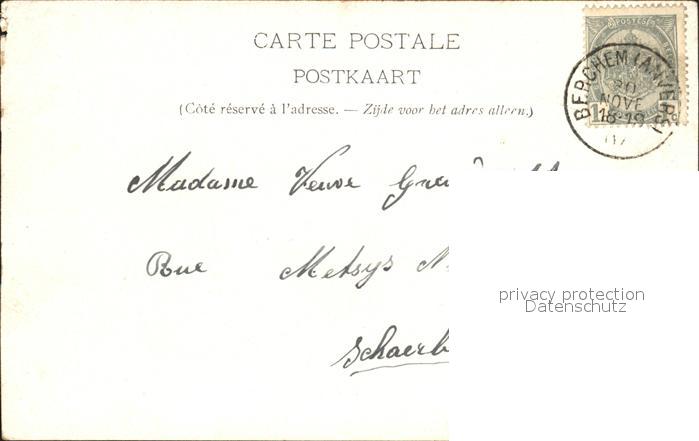 CARTE POSTALE
POSTKAART
(Côté réservé à l'adresse. — Zijde voor het adres alleen.)
POSTES
BERCHEM (ANVERS)
30
NOVE
18-19
Madame Veuve
Rue Metsys N
Schaerb
privacy protection
Datenschutz